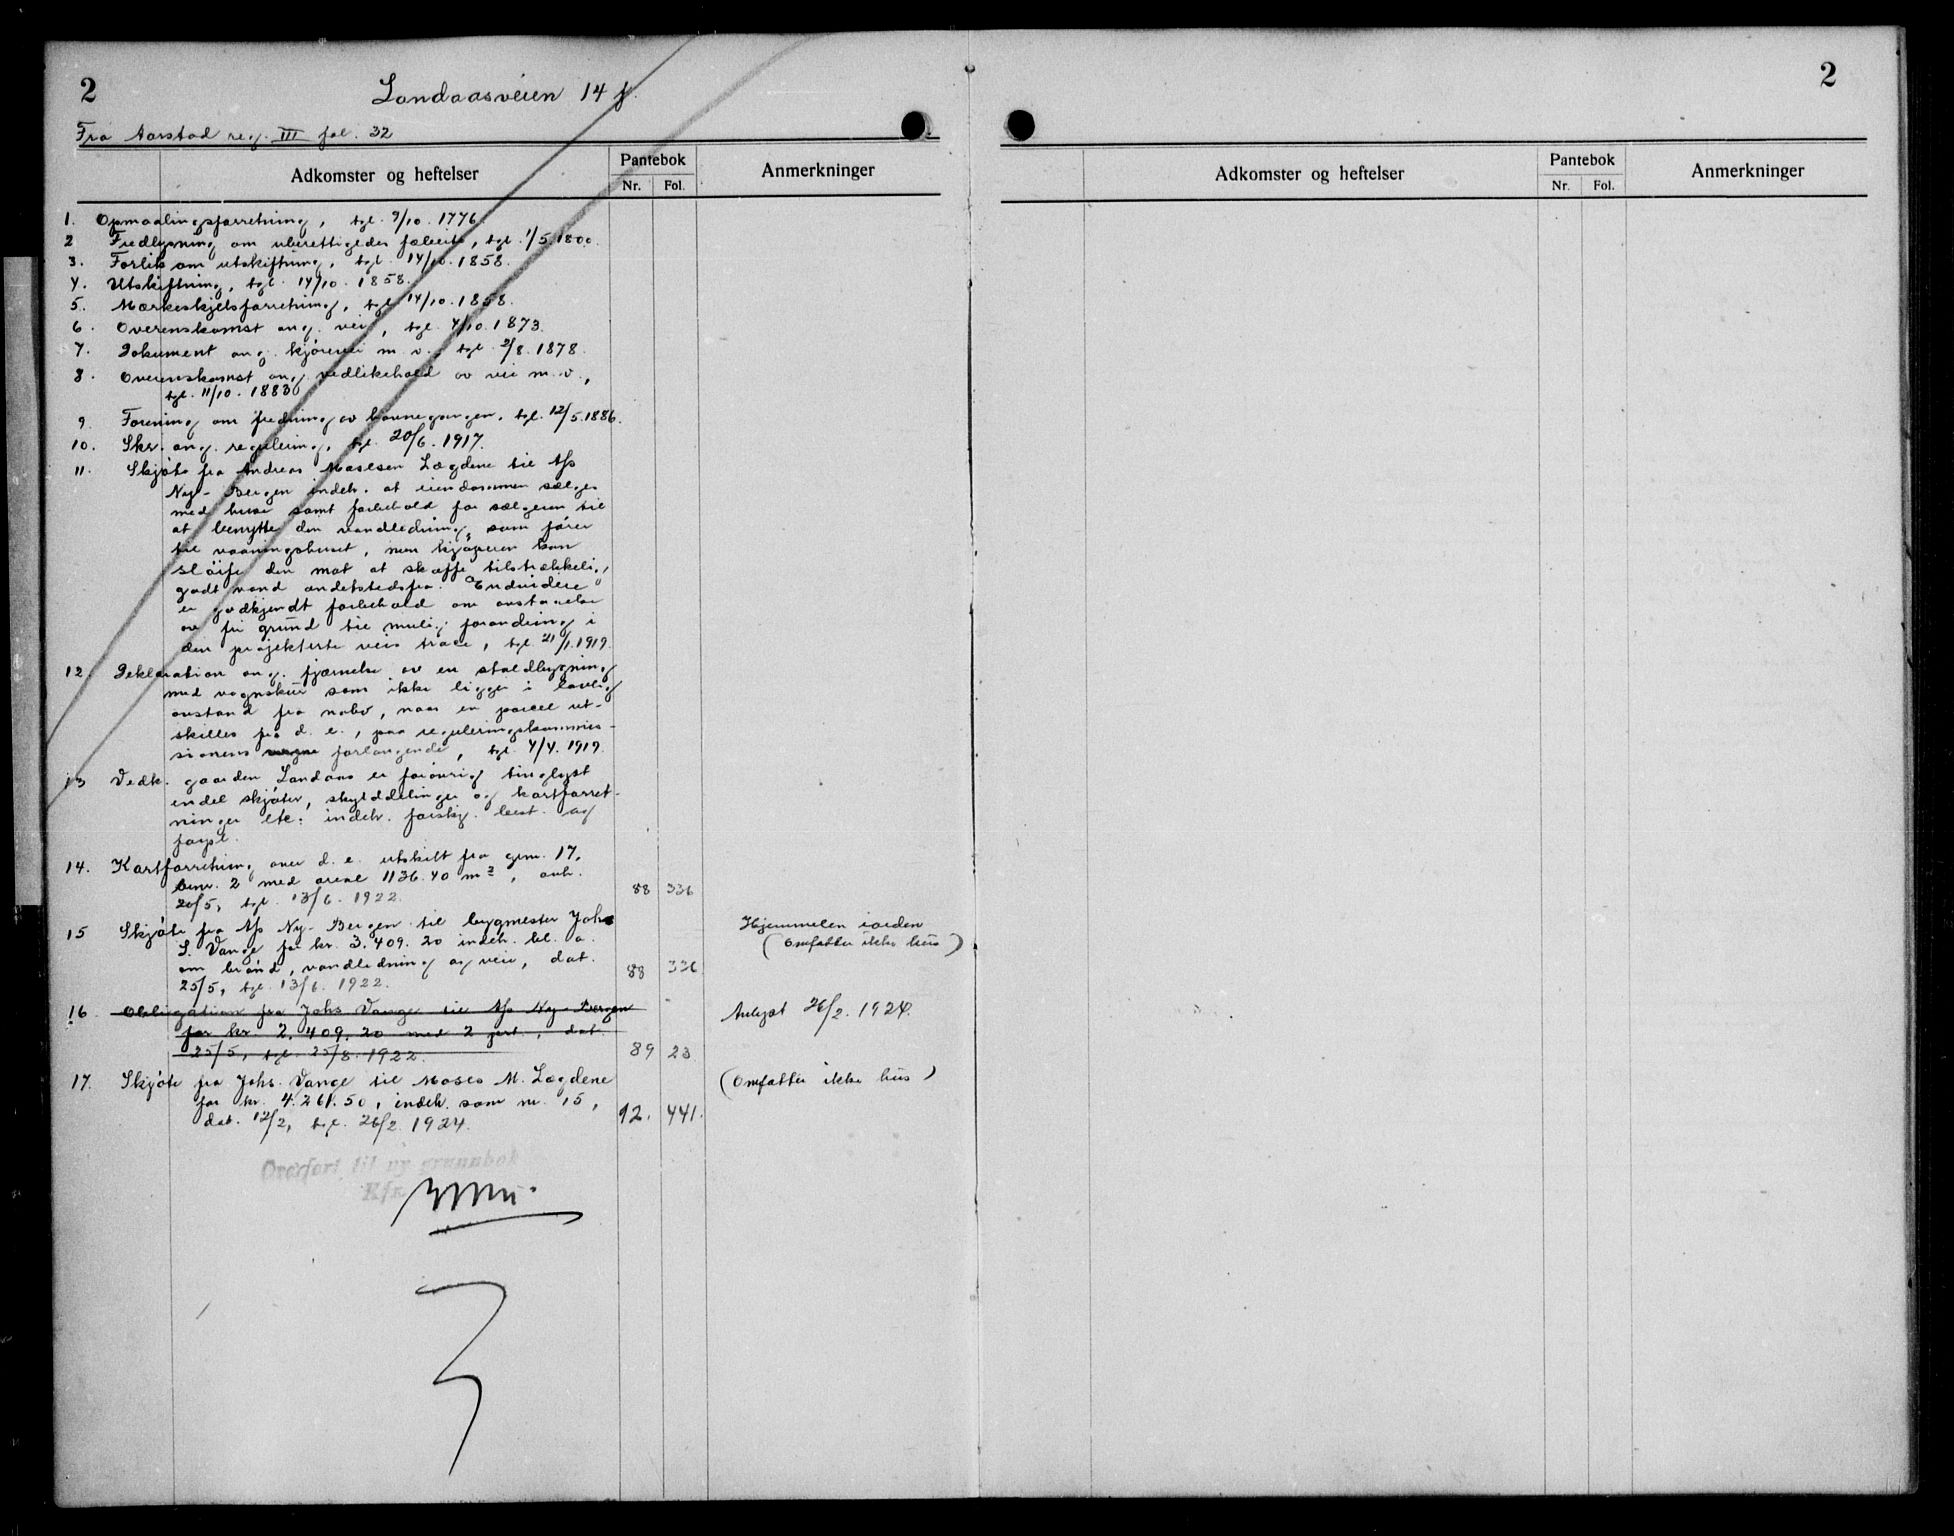 2
Landaasveien 14 f.
2
Fra Aarstad reg. III fol. 32
Adkomster og heftelser
Pantebok
Nr.
Fol.
Anmerkninger
Adkomster og heftelser
Pantebok
Nr.
Fol.
Anmerkninger
1. Opmaalingsforretning, tgl. 9/10. 1776.
2 Fredlysning om uberettigedes fæbeite, tgl. 1/5. 1800.
3. Forlik om utskiftning, tgl. 14/10. 1858.
4. Utskiftning, tgl. 14/10. 1858.
5. Mærkeskjelsforretning, tgl. 14/10. 1858.
6. Overenskomst ang. vei, tgl. 4/10. 1873.
7. Dokument ang. kjørevei m. v., tgl. 2/8. 1878.
8. Overenskomst ang. vedlikehold av vei m. v.,
tgl. 11/10. 1883
9. Forening om fredning av havnegangen, tgl. 12/5. 1886.
10. Skr. ang. regulering, tgl. 20/6. 1917.
11. Skjøte fra Andreas Mosesen Lægdene til A/s
Ny-Bergen indeh. at eiendommen sælges
med huse samt forbehold for sælgeren til
at benytte den vandledning, som fører
til vaaningshuset, men kjøperen kan
sløife den mot at skaffe tilstrækkelig
godt vand andetstedsfra. Endvidere
er godkjendt forbehold om avstaaelse
av fri grund til mulig forandring i
den projekterte veis trace, tgl. 21/1. 1919.
12. Deklaration ang. fjærnelse av en staldbygning
med vognskur som ikke ligger i lovlig
avstand fra nabo, naar en parcel ut-
skilles fra d. e., paa reguleringskommis-
sionens forlangende, tgl. 4/4. 1919.
13 Vedk. gaarden Landaas er forøvrig tinglyst
endel skjøter, skylddelinger og kartforret-
ninger etc. indeh. forskj. best. og
forpl.
14. Kartforretning over d. e. utskilt fra gnr. 17,
bnr. 2 med areal 1136.40 m², avh.
20/5, tgl. 13/6. 1922. 88 336
15 Skjøte fra A/s Ny-Bergen til bygmester Johs
S. Vange for kr. 3.409.20 indeh. bl. a.
om brønd, vandledning og vei, dat.
25/5, tgl. 13/6. 1922. 88 336
Hjemmelen iorden
(omfatter ikke hus)
16 Obligation fra Johs Vange til A/s Ny-Bergen
for kr. 2.409.20 med 2 prt., dat.
25/5, tgl. 25/8. 1922. 89 23
Avlyst 26/2. 1924.
17. Skjøte fra Johs. Vange til Moses M. Lægdene
for kr. 4.261.50, indeh. som nr. 15,
dat. 12/2, tgl. 26/2. 1924. 92. 441.
(omfatter ikke hus)
Overført til ny grunnbok